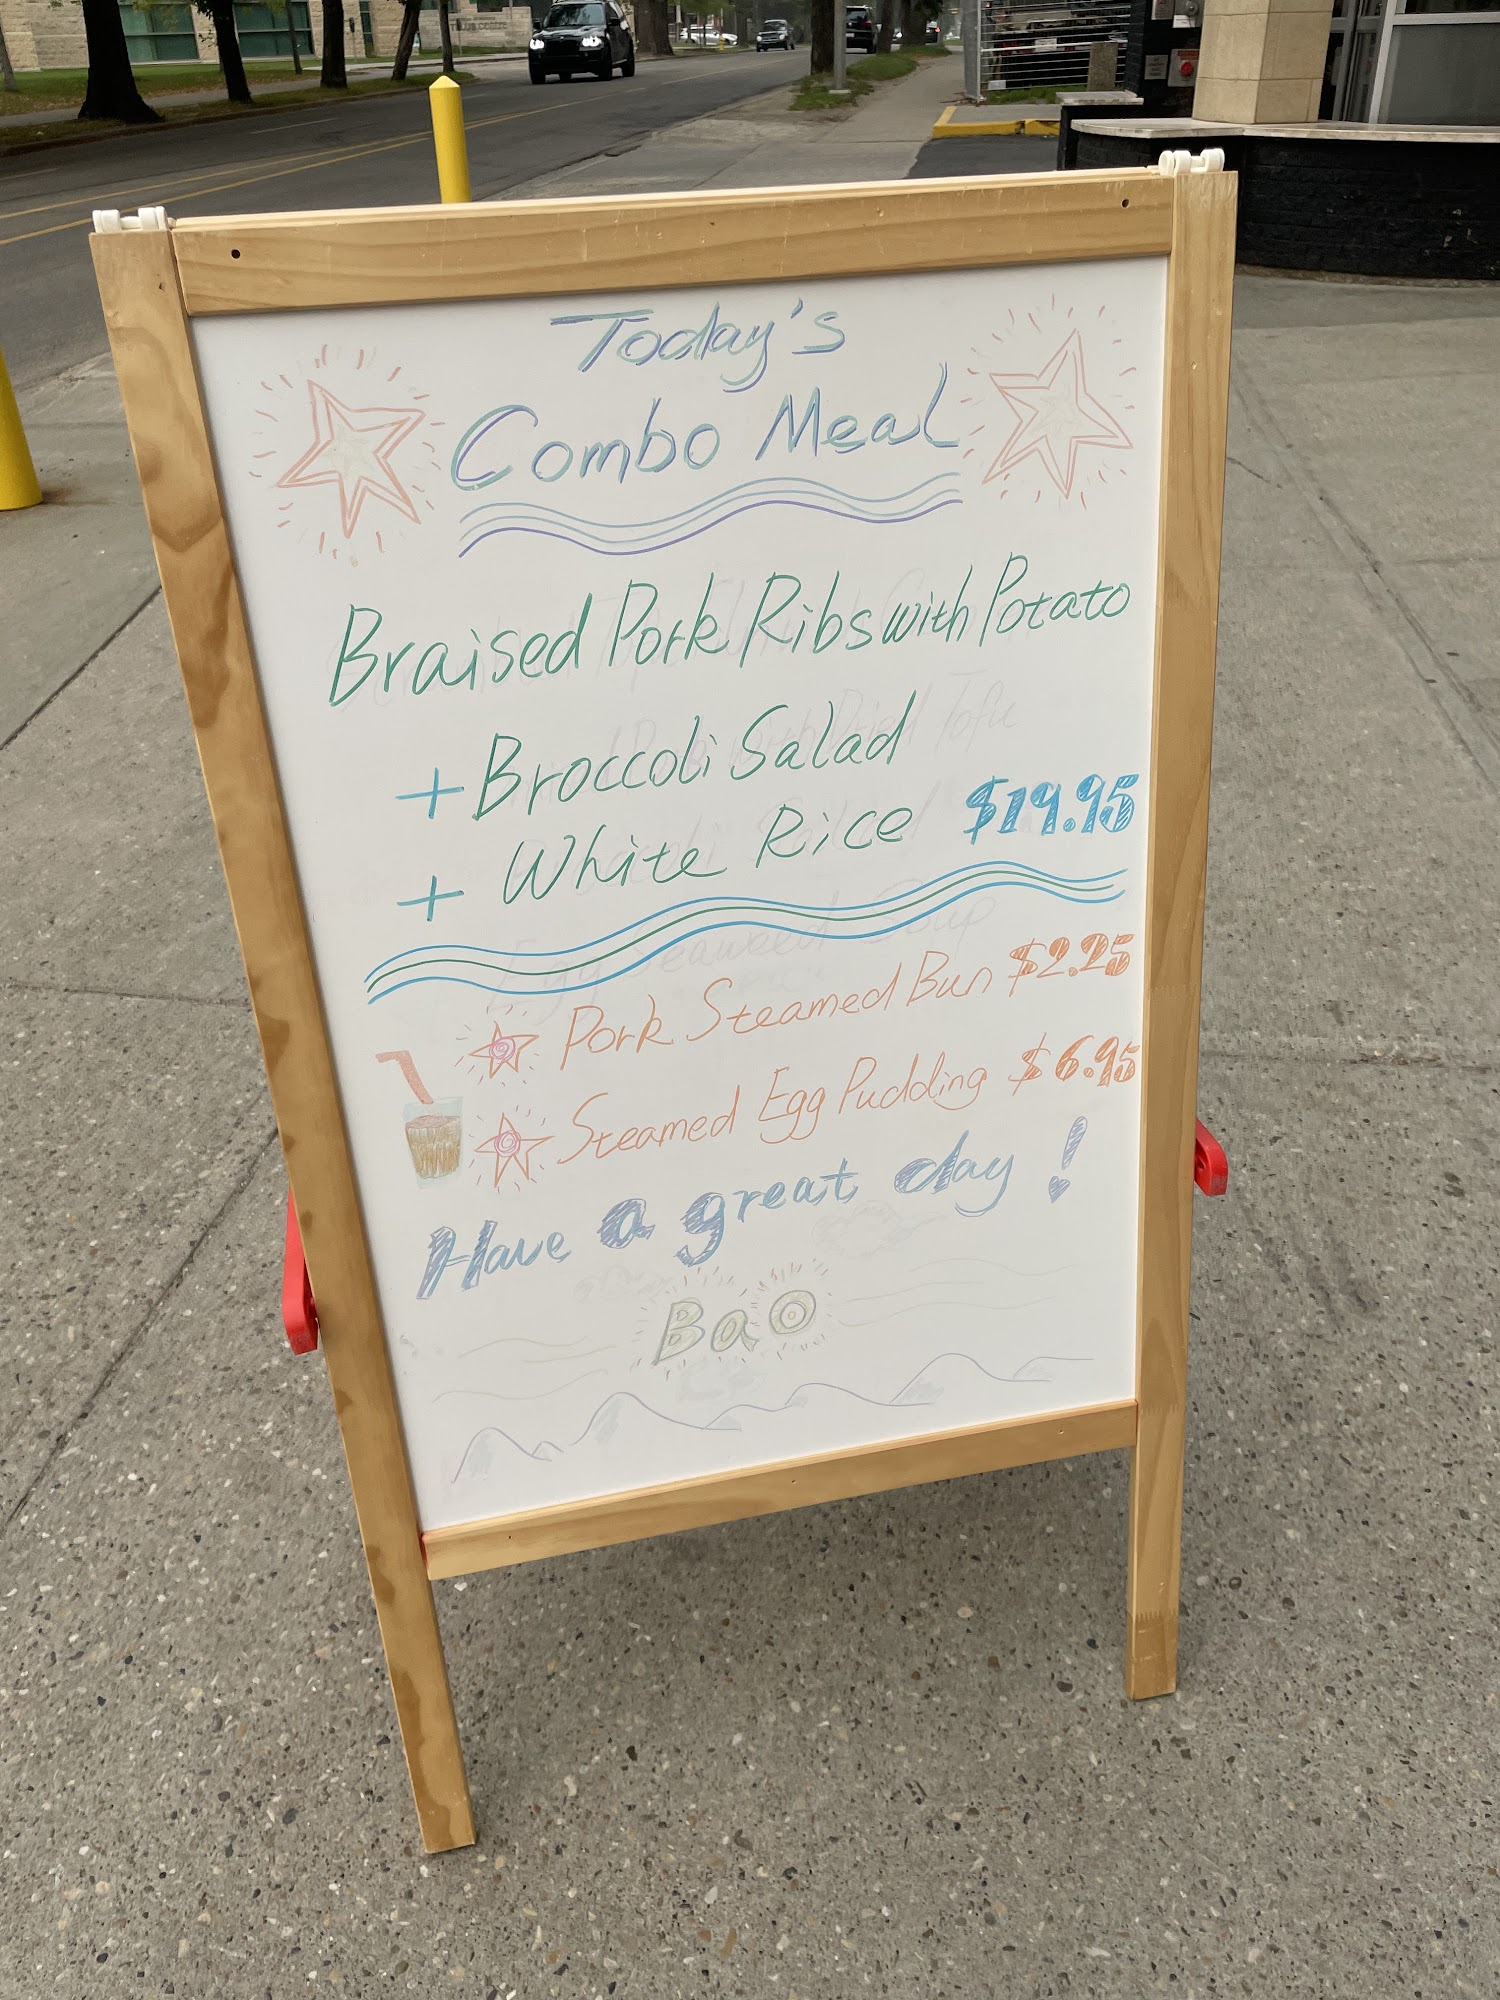 Today's
Combo Meal
Braised Pork Ribs with Potato
+ Broccoli Salad
+ White Rice $19.95
Pork Steamed Bun $2.25
Steamed Egg Pudding $6.95
Have a great day!
BaO